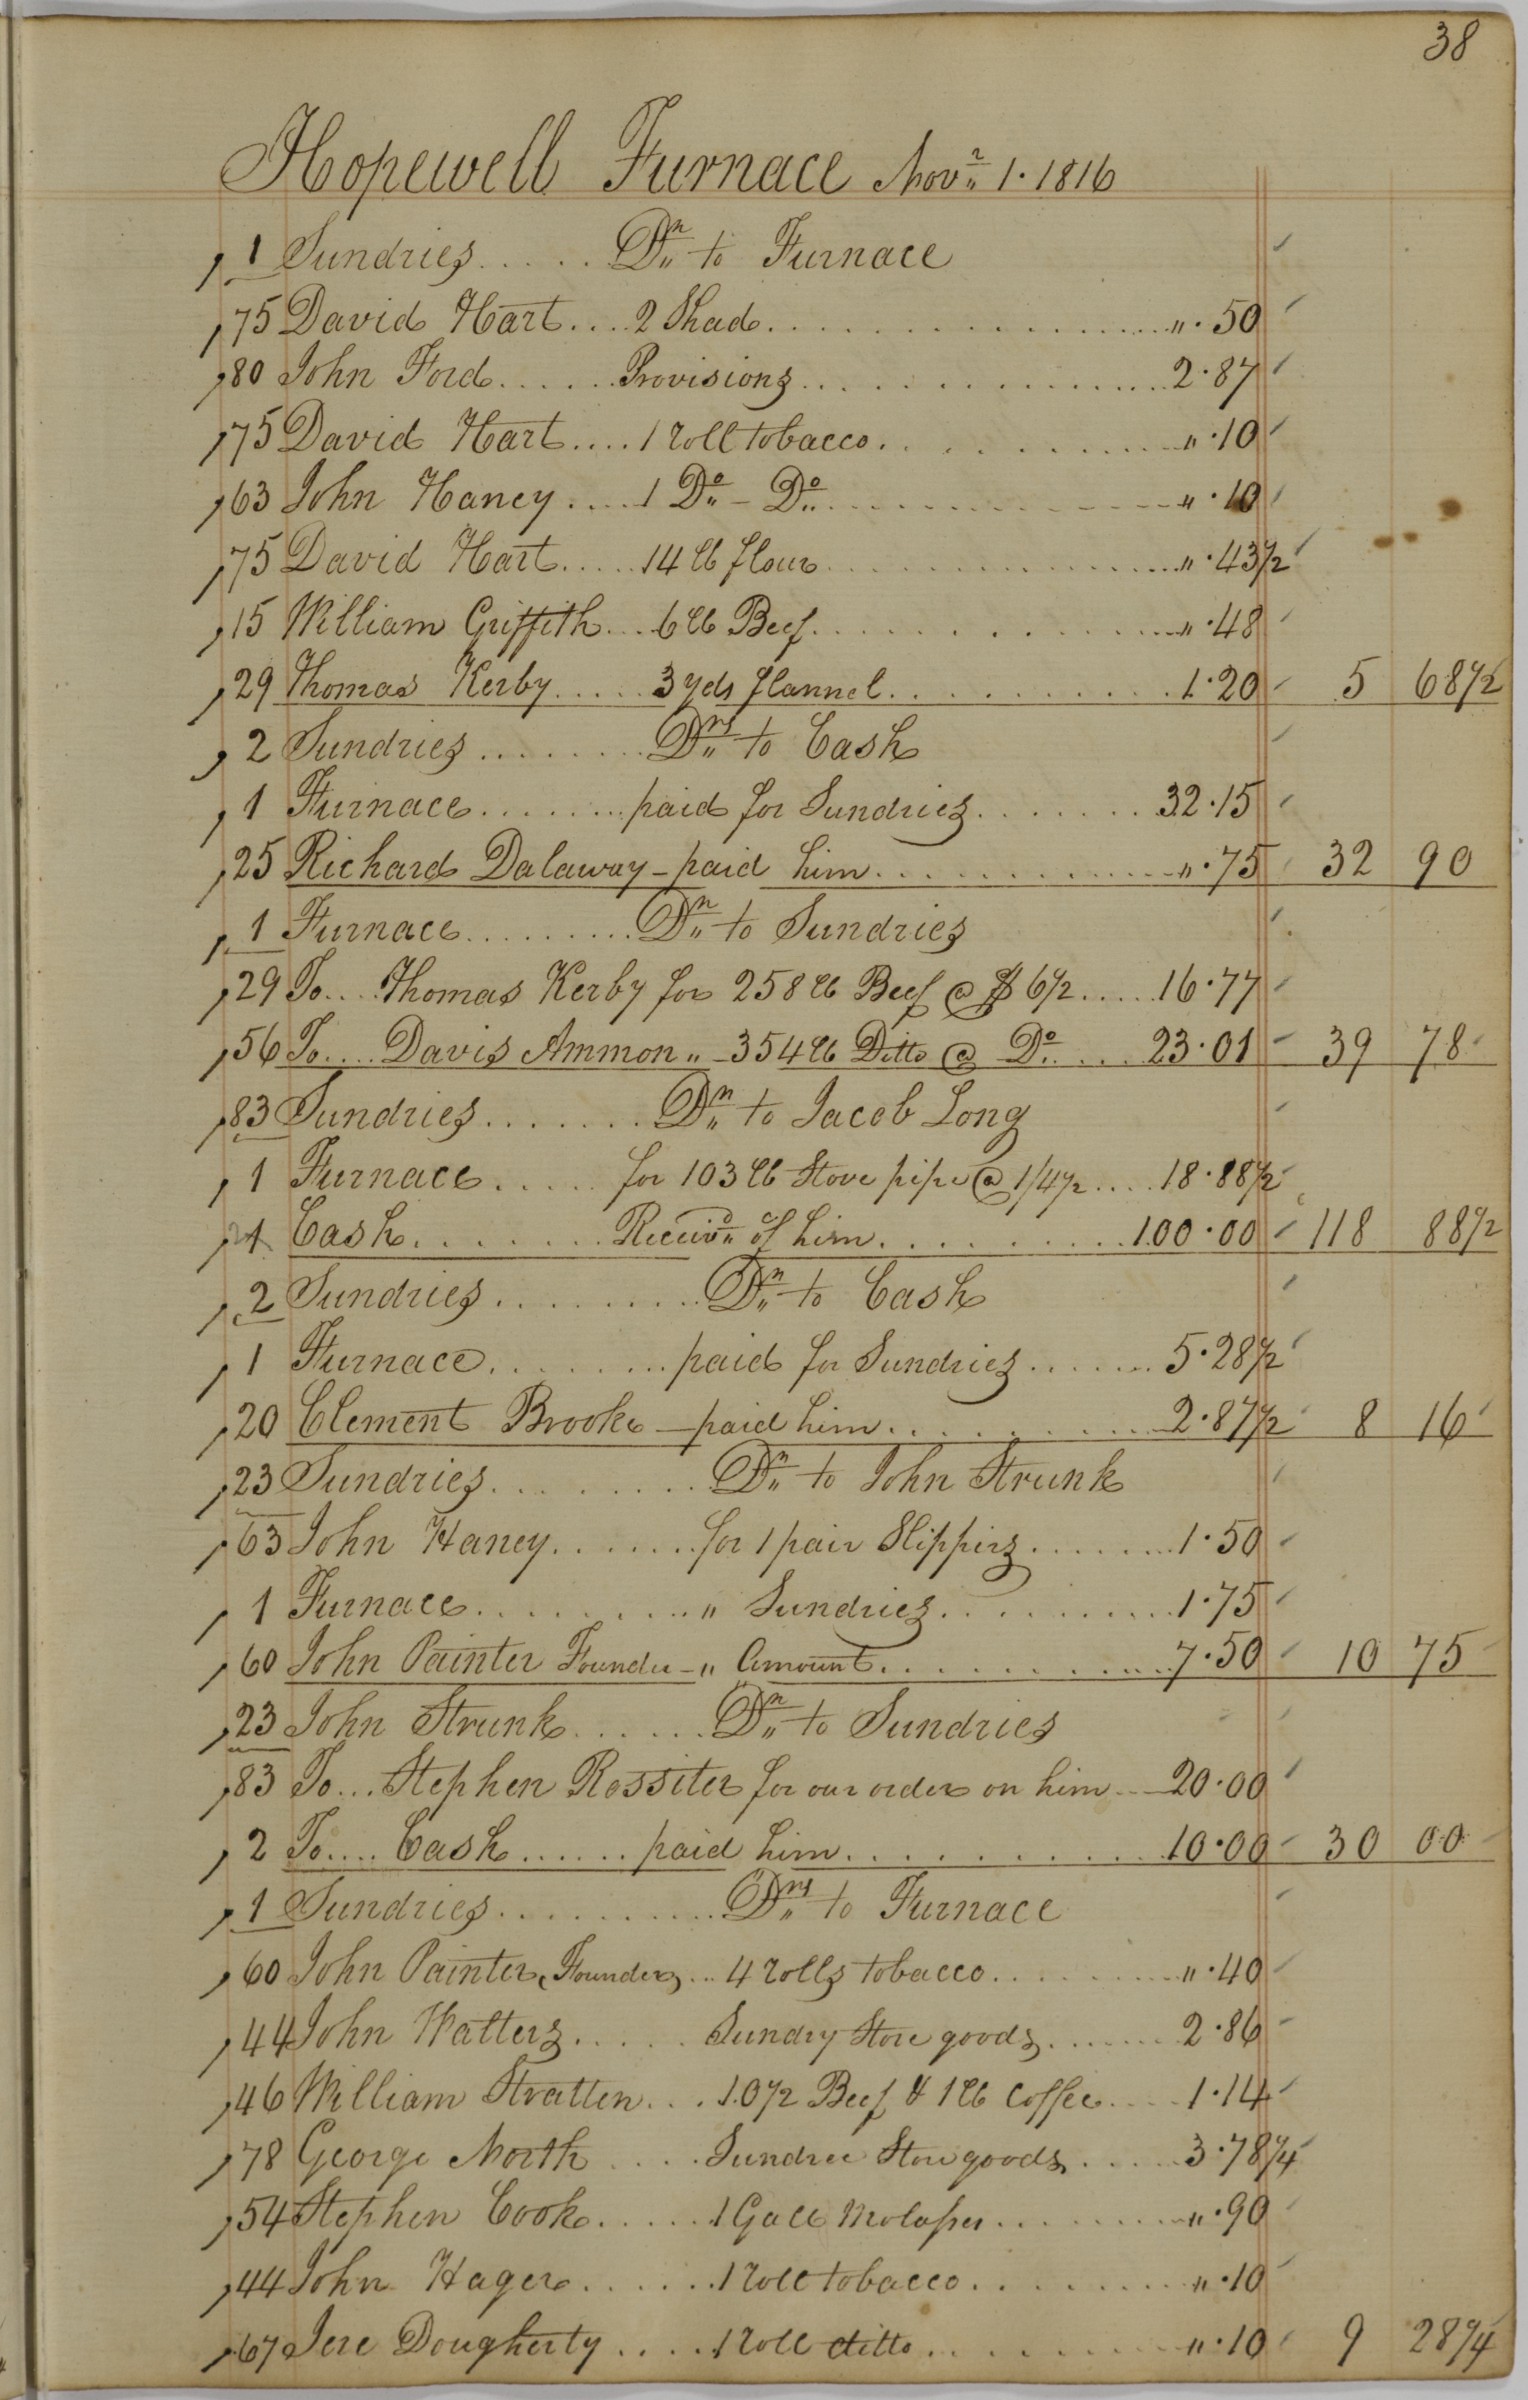 38
Hopewell Furnace Novr 1. 1816
1 Sundries ..... Dr to Furnace
75 David Hart .... 2 Shad ..... ". 50
80 John Ford ..... Provisions ..... 2.87
75 David Hart .... 1 roll tobacco ..... ". 10
63 John Haney .... 1 Do - Do ..... ". 10
75 David Hart ..... 14 lb flour ..... ". 43 1/2
15 William Griffith ... 6 lb Beef ..... ". 48
29 Thomas Kerby ..... 3 yds flannel ..... 1.20 5 68 1/2
2 Sundries ..... Drs to Cash
1 Furnace ..... paid for Sundries ..... 32.15
25 Richard Dalaway - paid him ..... ". 75 32 90
1 Furnace ..... Dr to Sundries
29 To .... Thomas Kerby for 258 lb Beef @ $ 6 1/2 ..... 16.77
56 To .... Davis Ammon " - 354 lb Ditto @ Do ..... 23.01 39 78
83 Sundries ..... Dr to Jacob Long
1 Furnace ..... for 103 lb Stove pipe @ 1/4 1/2 .... 18.88 1/2
1 Cash ..... Receivd of him ..... 100.00 118 88 1/2
2 Sundries ..... Dr to Cash
1 Furnace ..... paid for Sundries ..... 5.28 1/2
20 Clement Brooke - paid him ..... 2.87 1/2 8 16
23 Sundries ..... Dr to John Strunk
63 John Haney ..... for 1 pair Slippers ..... 1.50
1 Furnace ..... " Sundries ..... 1.75
60 John Painter Founder - " Amount ..... 7.50 10 75
23 John Strunk ..... Dr to Sundries
83 To ... Stephen Rossiter for our order on him ... 20.00
2 To .... Cash ..... paid him ..... 10.00 30 00
1 Sundries ..... Drs to Furnace
60 John Painter, Founder, ... 4 rolls tobacco ..... ". 40
44 John Watters ..... Sundry Store goods ..... 2.86
46 William Stratten ... 10 1/2 Beef & 1 lb Coffee .... 1.14
78 George North ..... Sundree Store goods ..... 3.78 1/4
54 Stephen Cook ..... 1 Gall Molasses ..... ". 90
44 John Hager ..... 1 roll tobacco ..... ". 10
67 Jere Dougherty .... 1 roll ditto ..... ". 10 9 28 1/4